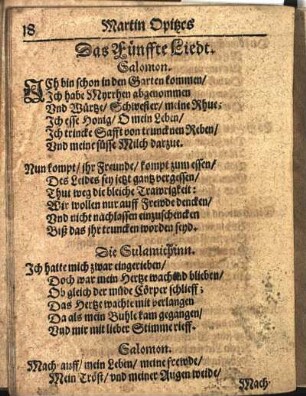 18 Martin Opitzes
Das Fünffte Liedt.
Salomon.
ICh bin schon in den Garten kommen/
Ich habe Myrrhen abgenommen
Vnd Würtze/ Schwester/ meine Rhue:
Ich esse Honig/ O mein Leben/
Ich trincke Safft von truncknen Reben/
Vnd meine süsse Milch darzue.
Nun kompt/ ihr Freunde/ kompt zum essen/
Des Leides sey jetzt gantz vergessen/
Thut weg die bleiche Trawrigkeit:
Wir wollen nur auff Frewde dencken/
Vnd nicht nachlassen einzuschencken
Biß das ihr truncken worden seyd.
Die Sulamithinn.
Ich hatte mich zwar eingerieben/
Doch war mein Hertze wachend blieben/
Ob gleich der müde Cörper schlieff;
Das Hertze wachte mit verlangen
Da als mein Buhle kam gegangen/
Vnd mir mit lieber Stimme rieff.
Salomon.
Mach auff/ mein Leben/ meine frewde/
Mein Tröst/ vnd meiner Augen weide/
Mach